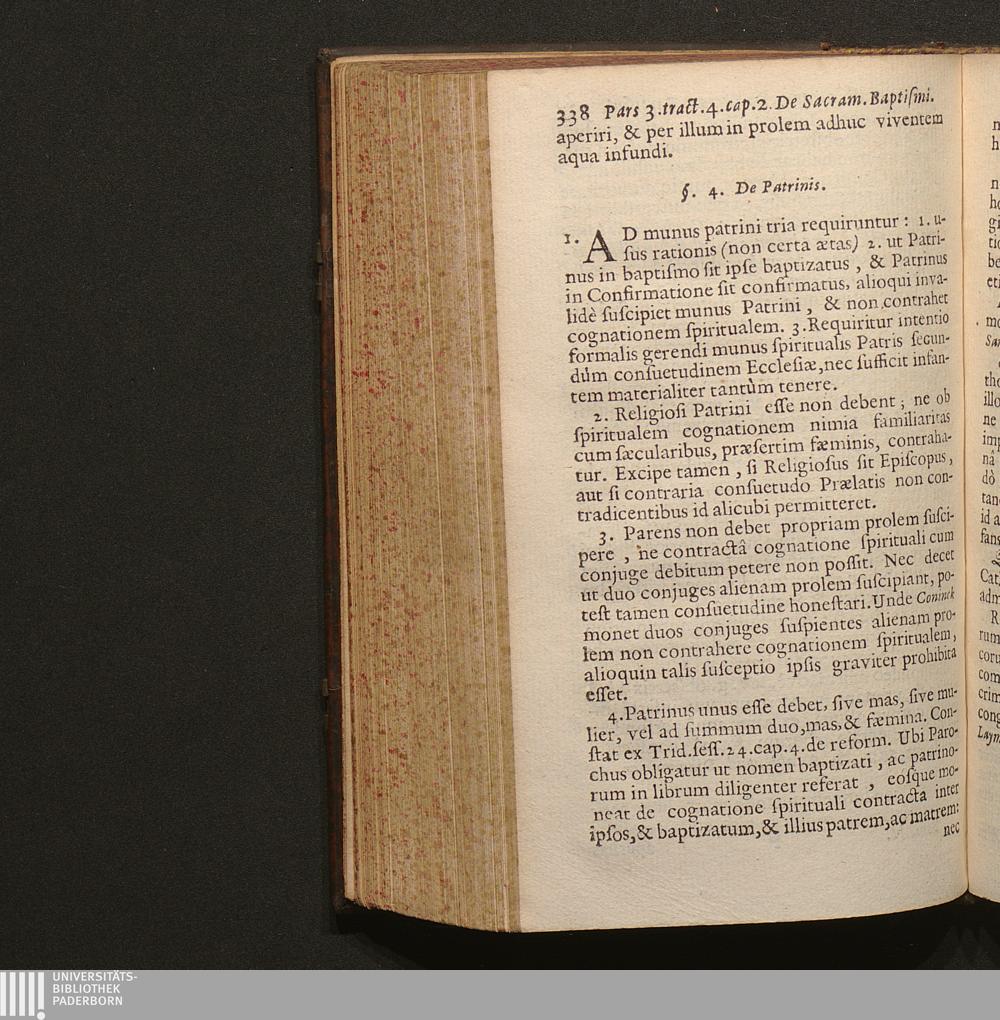 338 Pars 3.tract.4.cap.2. De Sacram. Baptiſmi.
aperiri, & per illum in prolem adhuc viventem
aqua infundi.
§. 4. De Patrinis.
1. AD munus patrini tria requiruntur : 1. u-
ſus rationis (non certa ætas) 2. ut Patri-
nus in baptiſmo ſit ipſe baptizatus , & Patrinus
in Confirmatione ſit confirmatus, alioqui inva-
lidè ſuſcipiet munus Patrini , & non contrahet
cognationem ſpiritualem. 3.Requiritur intentio
formalis gerendi munus ſpiritualis Patris ſecun-
dùm conſuetudinem Eccleſiæ,nec ſufficit infan-
tem materialiter tantùm tenere.
2. Religioſi Patrini eſſe non debent ; ne ob
ſpiritualem cognationem nimia familiaritas
cum ſæcularibus, præſertim fæminis, contraha-
tur. Excipe tamen , ſi Religioſus ſit Epiſcopus,
aut ſi contraria conſuetudo Prælatis non con-
tradicentibus id alicubi permitteret.
3. Parens non debet propriam prolem ſuſci-
pere , ne contractâ cognatione ſpirituali cum
conjuge debitum petere non poſſit. Nec decet
ut duo conjuges alienam prolem ſuſcipiant, po-
teſt tamen conſuetudine honeſtari.Unde Coninck
monet duos conjuges ſuſpientes alienam pro-
lem non contrahere cognationem ſpiritualem,
alioquin talis ſuſceptio ipſis graviter prohibita
eſſet.
4.Patrinus unus eſſe debet, ſive mas, ſive mu-
lier, vel ad ſummum duo,mas,& fæmina. Con-
ſtat ex Trid.ſeſſ.24.cap.4.de reform. Ubi Paro-
chus obligatur ut nomen baptizati , ac patrino-
rum in librum diligenter referat , eoſque mo-
neat de cognatione ſpirituali contracta inter
ipſos,& baptizatum,& illius patrem,ac matrem:
nec
UNIVERSITÄTS-
BIBLIOTHEK
PADERBORN